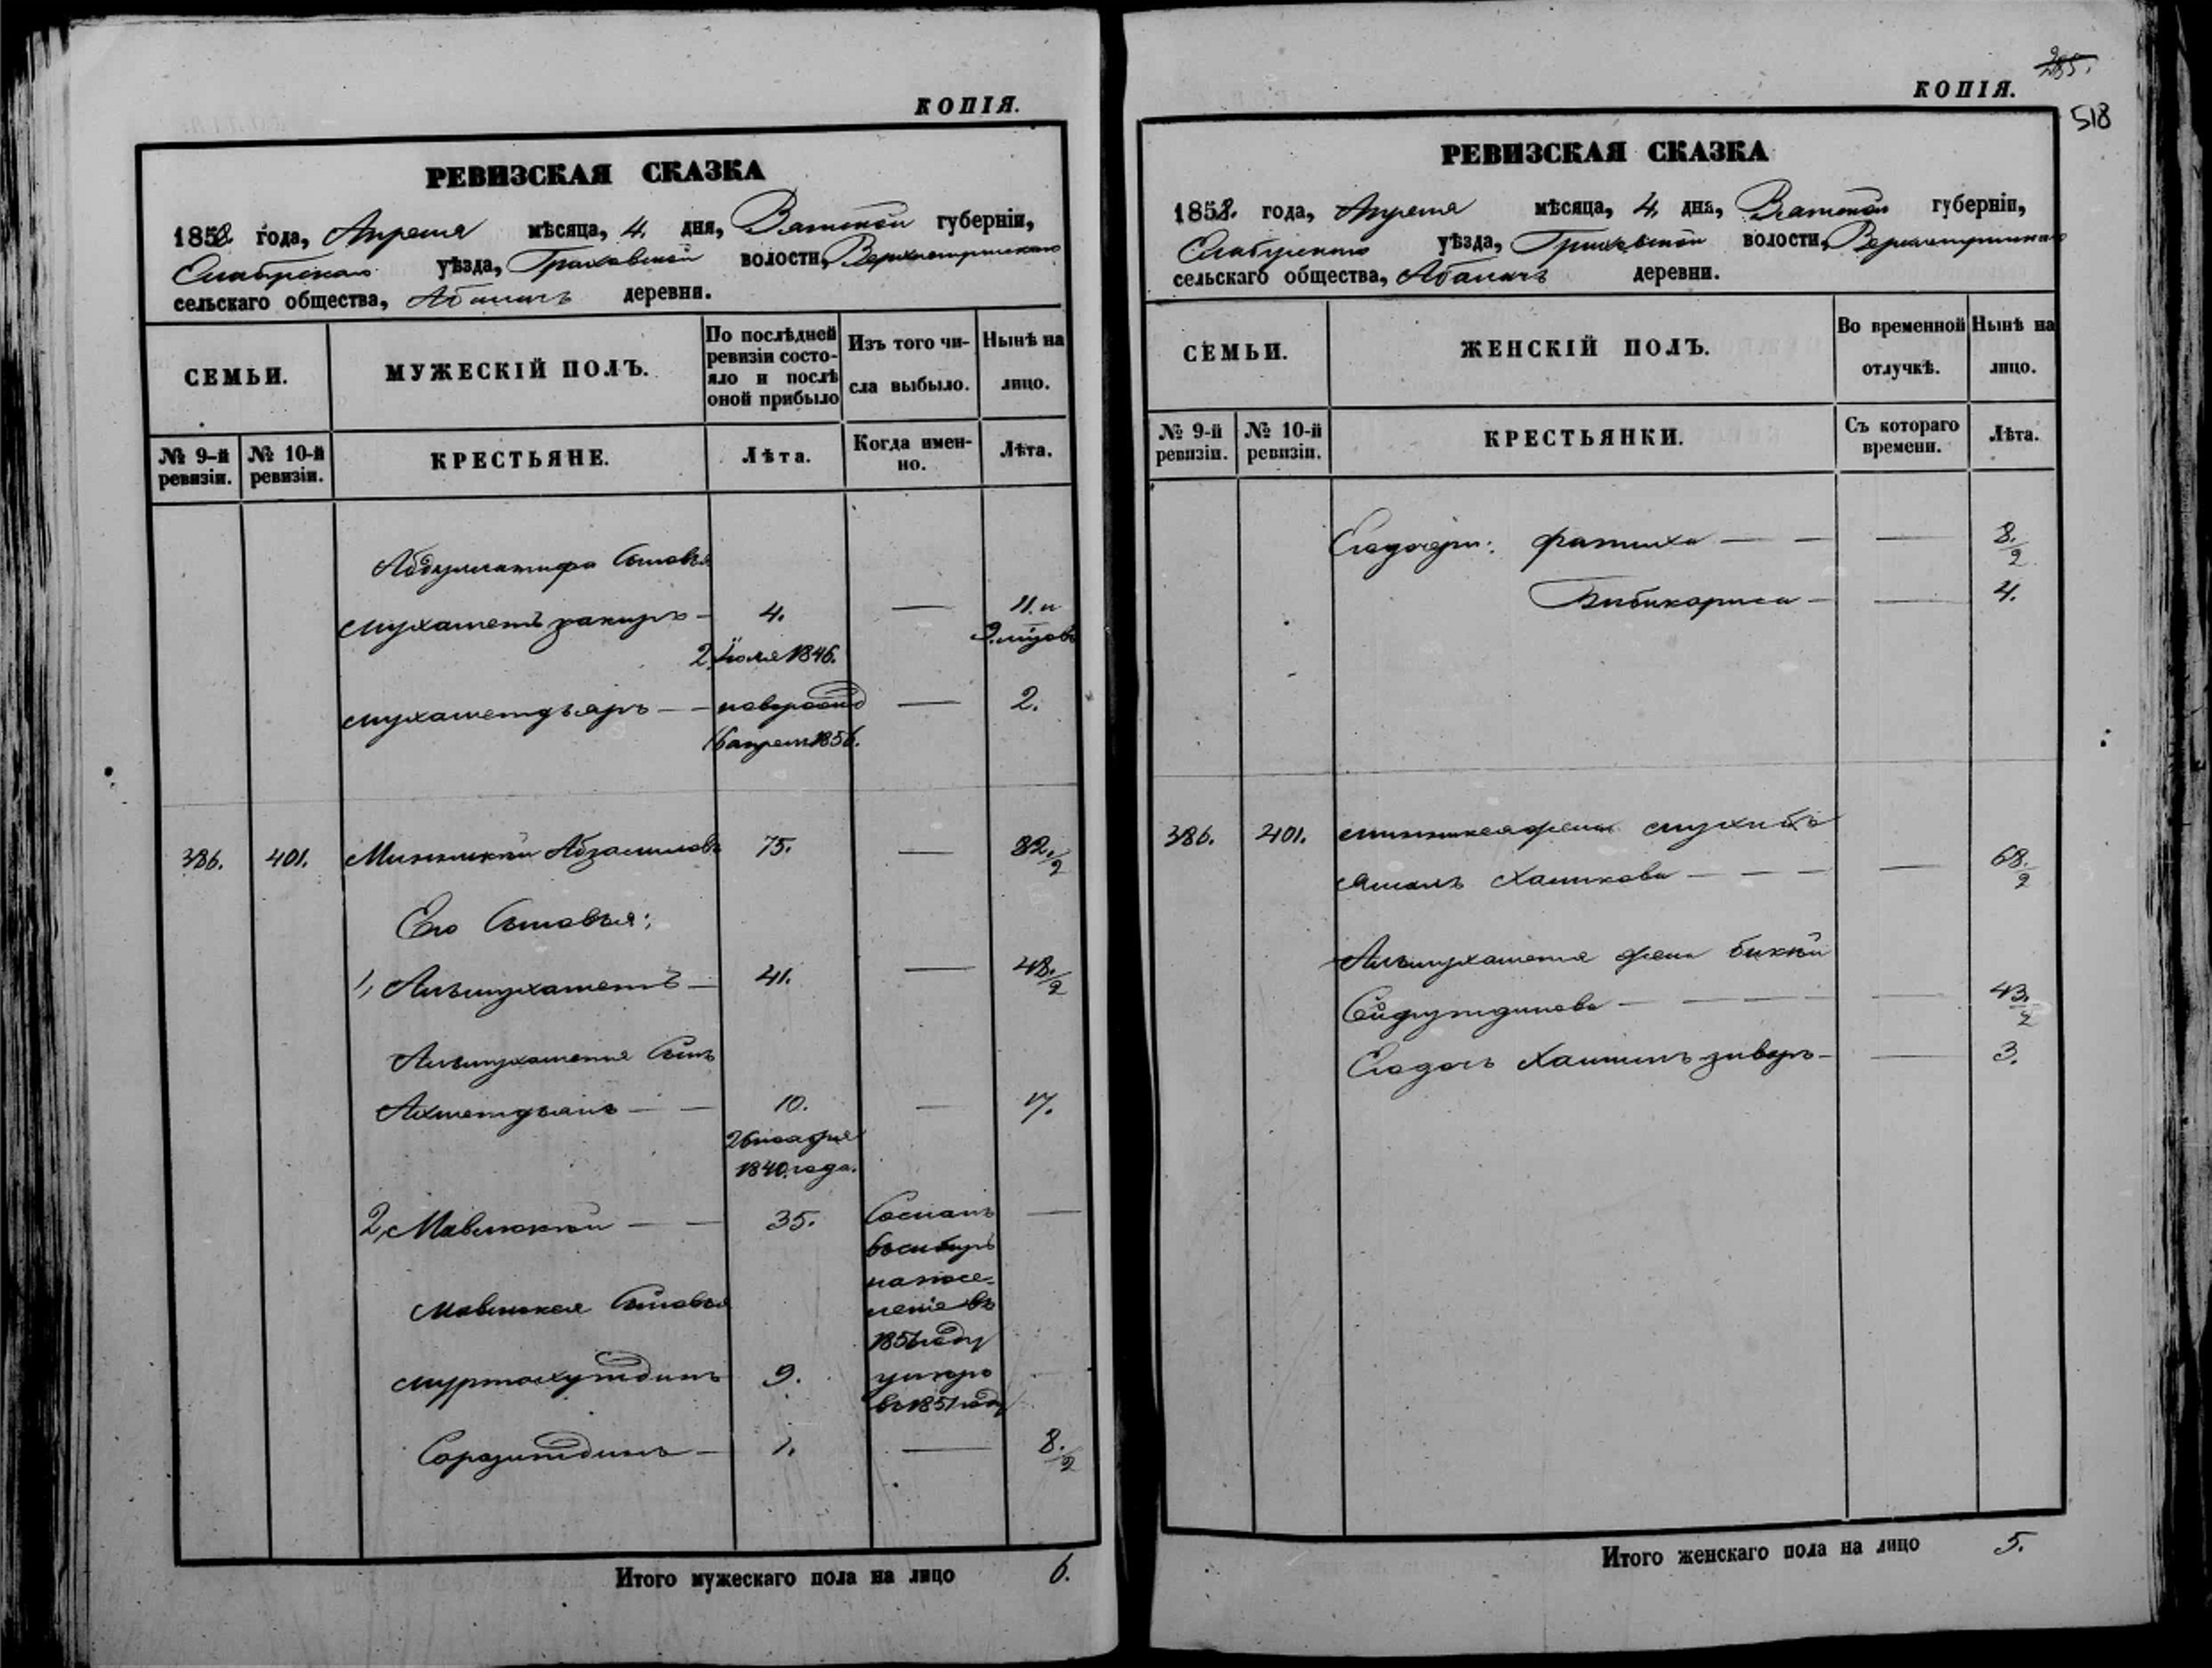 КОПІЯ.
РЕВИЗСКАЯ СКАЗКА
1858 года, Апреля мѣсяца, 4. дня, Вятской губерніи,
Елабугскаго уѣзда, Граховской волости,
сельскаго общества, деревни.
СЕМЬИ.
МУЖЕСКІЙ ПОЛЪ.
По послѣдней ревизіи состояло и послѣ оной прибыло
Изъ того числа выбыло.
Нынѣ на лицо.
№ 9-й ревизіи.
№ 10-й ревизіи.
КРЕСТЬЯНЕ.
Лѣта.
Когда именно.
Лѣта.
Абдуллатифа Сыновья
Мухаметъ закиръ — 4. — 11. и
2. Іюля 1846. 9. мѣсов
Мухаметдьяръ — — новорожд — 2.
16 апреля 1856.
386. 401. 75. — 82./2
Его Сыновья;
1, Альмухаметъ — 41. — 48./2
Альмухаметя Сынъ
Ахметдьянъ — — 10. — 17.
26 ноября
1840. года.
2, Мавлюкѣй — — 35. Сосланъ —
въ сибирь
на посе-
леніе въ
1851 году
Мавлюкея Сыновья
9. умеръ
въ 1851 году
— 1. — 8./2
Итого мужескаго пола на лицо 6.
285.
518
КОПІЯ.
РЕВИЗСКАЯ СКАЗКА
1858. года, Апреля мѣсяца, 4. дня, Вятской губерніи,
Елабугскаго уѣзда, Граховской волости,
сельскаго общества, деревни.
СЕМЬИ.
ЖЕНСКІЙ ПОЛЪ.
Во временной отлучкѣ.
Нынѣ на лицо.
№ 9-й ревизіи.
№ 10-й ревизіи.
КРЕСТЬЯНКИ.
Съ котораго времени.
Лѣта.
Его дочери: Фатиха — — — 8./2
— — 4.
386. 401. Миникея жена
— — — — 68./2
Альмухаметя жена бикѣй
Сайфутдинова — — — — — 43./2
Его дочь — — 3.
Итого женскаго пола на лицо 5.